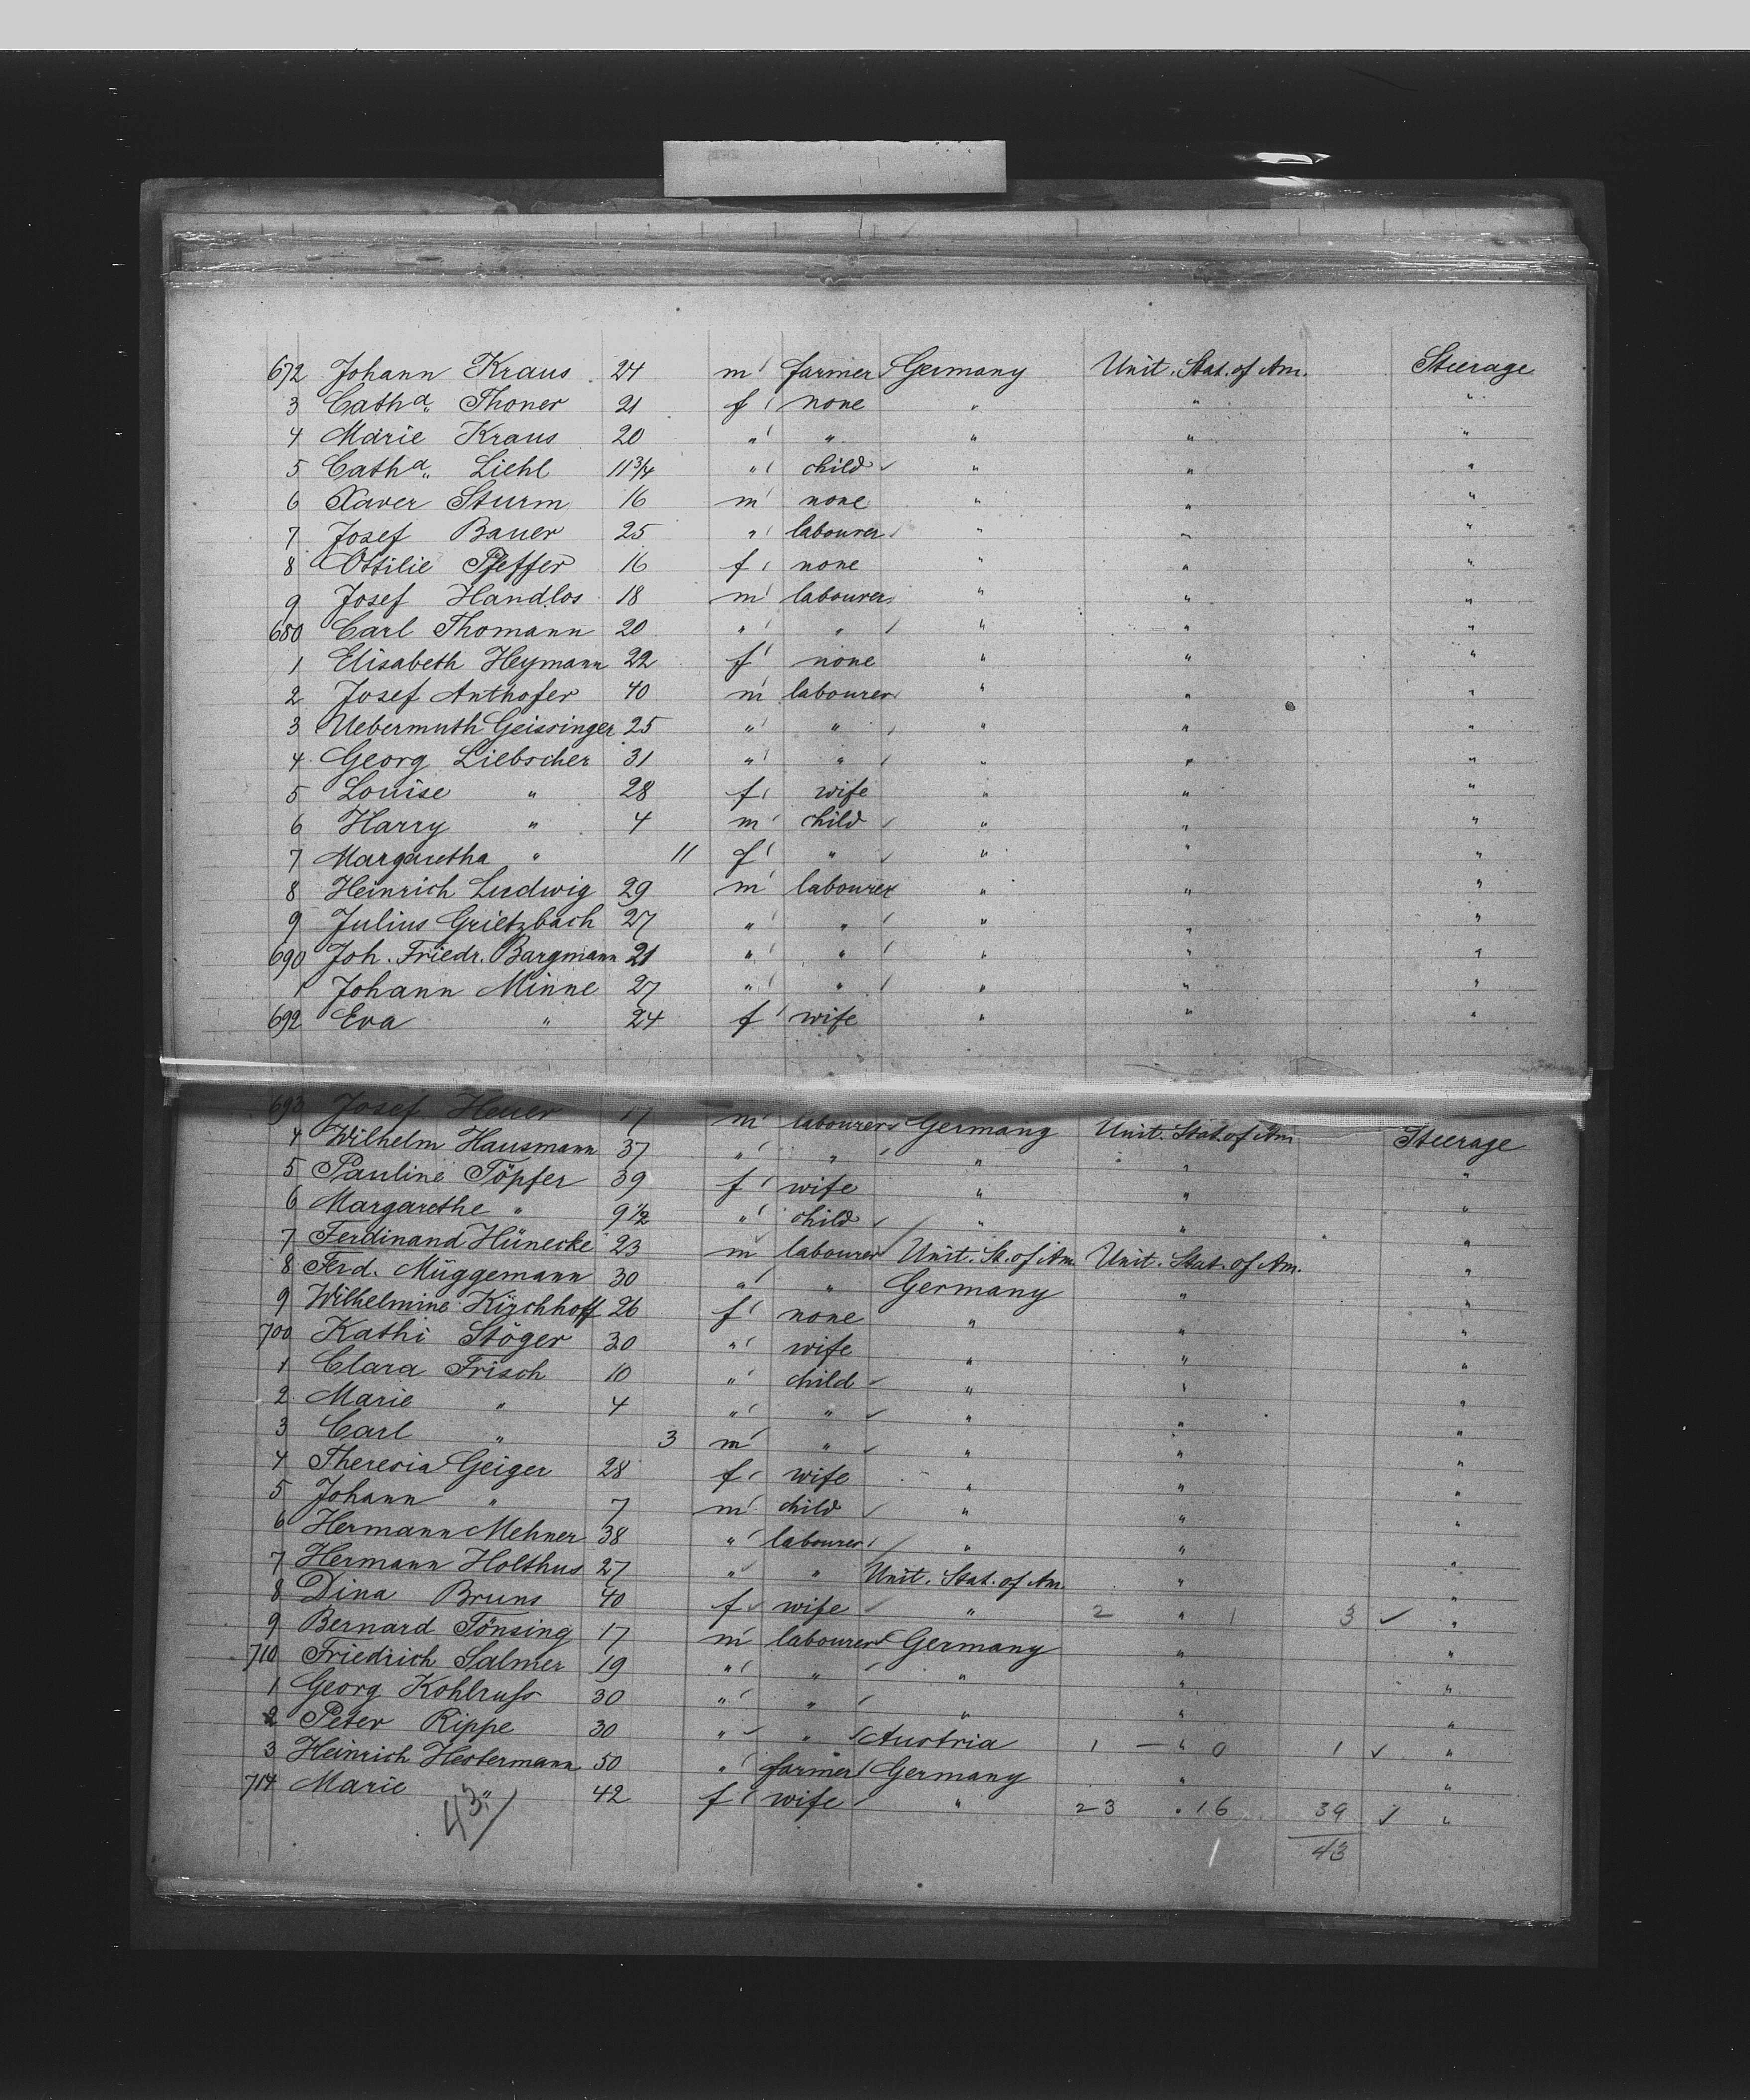 672 Johann Kraus 24 m farmer Germany Unit. Stat. of Am. Steerage
3 Catha. Thoner 21 f none " " "
4 Marie Kraus 20 " " " " "
5 Catha. Liehl 11 3/4 " child " " "
6 Xaver Sturm 16 m none " " "
7 Josef Bauer 25 " labourer " " "
8 Ottilie Pfeffer 16 f none " " "
9 Josef Handlos 18 m labourer " " "
680 Carl Thomann 20 " " " " "
1 Elisabeth Heymann 22 f none " " "
2 Josef Anthofer 40 m labourer " " "
3 Uebermuth Geissinger 25 " " " " "
4 Georg Liebscher 31 " " " " "
5 Louise " 28 f wife " " "
6 Harry " 4 m child " " "
7 Margaretha " 11 f " " " "
8 Heinrich Ludwig 29 m labourer " " "
9 Julius Grietzbach 27 " " " " "
690 Joh. Friedr. Bargmann 21 " " " " "
1 Johann Minne 27 " " " " "
692 Eva " 24 f wife " " "
693 Josef Heuer 17 m labourer Germany Unit. Stat. of Am Steerage
4 Wilhelm Hausmann 37 " " " " "
5 Pauline Töpfer 39 f wife " " "
6 Margarethe " 9 1/2 " child " " "
7 Ferdinand Hünecke 23 m labourer Unit. St. of Am. Unit. Stat. of Am. "
8 Ferd. Müggemann 30 " " Germany " "
9 Wilhelmine Kirchhoff 26 f none " " "
700 Kathi Stöger 30 " wife " " "
1 Clara Frisch 10 " child " " "
2 Marie " 4 " " " " "
3 Carl " 3 m " " " "
4 Theresia Geiger 28 f wife " " "
5 Johann " 7 m child " " "
6 Hermann Mehner 38 " labourer " " "
7 Hermann Holthus 27 " " Unit. Stat. of Am. " "
8 Dina Bruns 40 f wife " 2 " 1 3 ✓ "
9 Bernard Tönsing 17 m labourer Germany " "
710 Friedrich Salmer 19 " " " " "
1 Georg Kohlruss 30 " " " " "
2 Peter Rippe 30 " " Austria 1 — " 0 1 ✓ "
3 Heinrich Hestermann 50 " farmer Germany " "
714 Marie " 42 f wife " 23 " 16 39 ✓ "
43 43